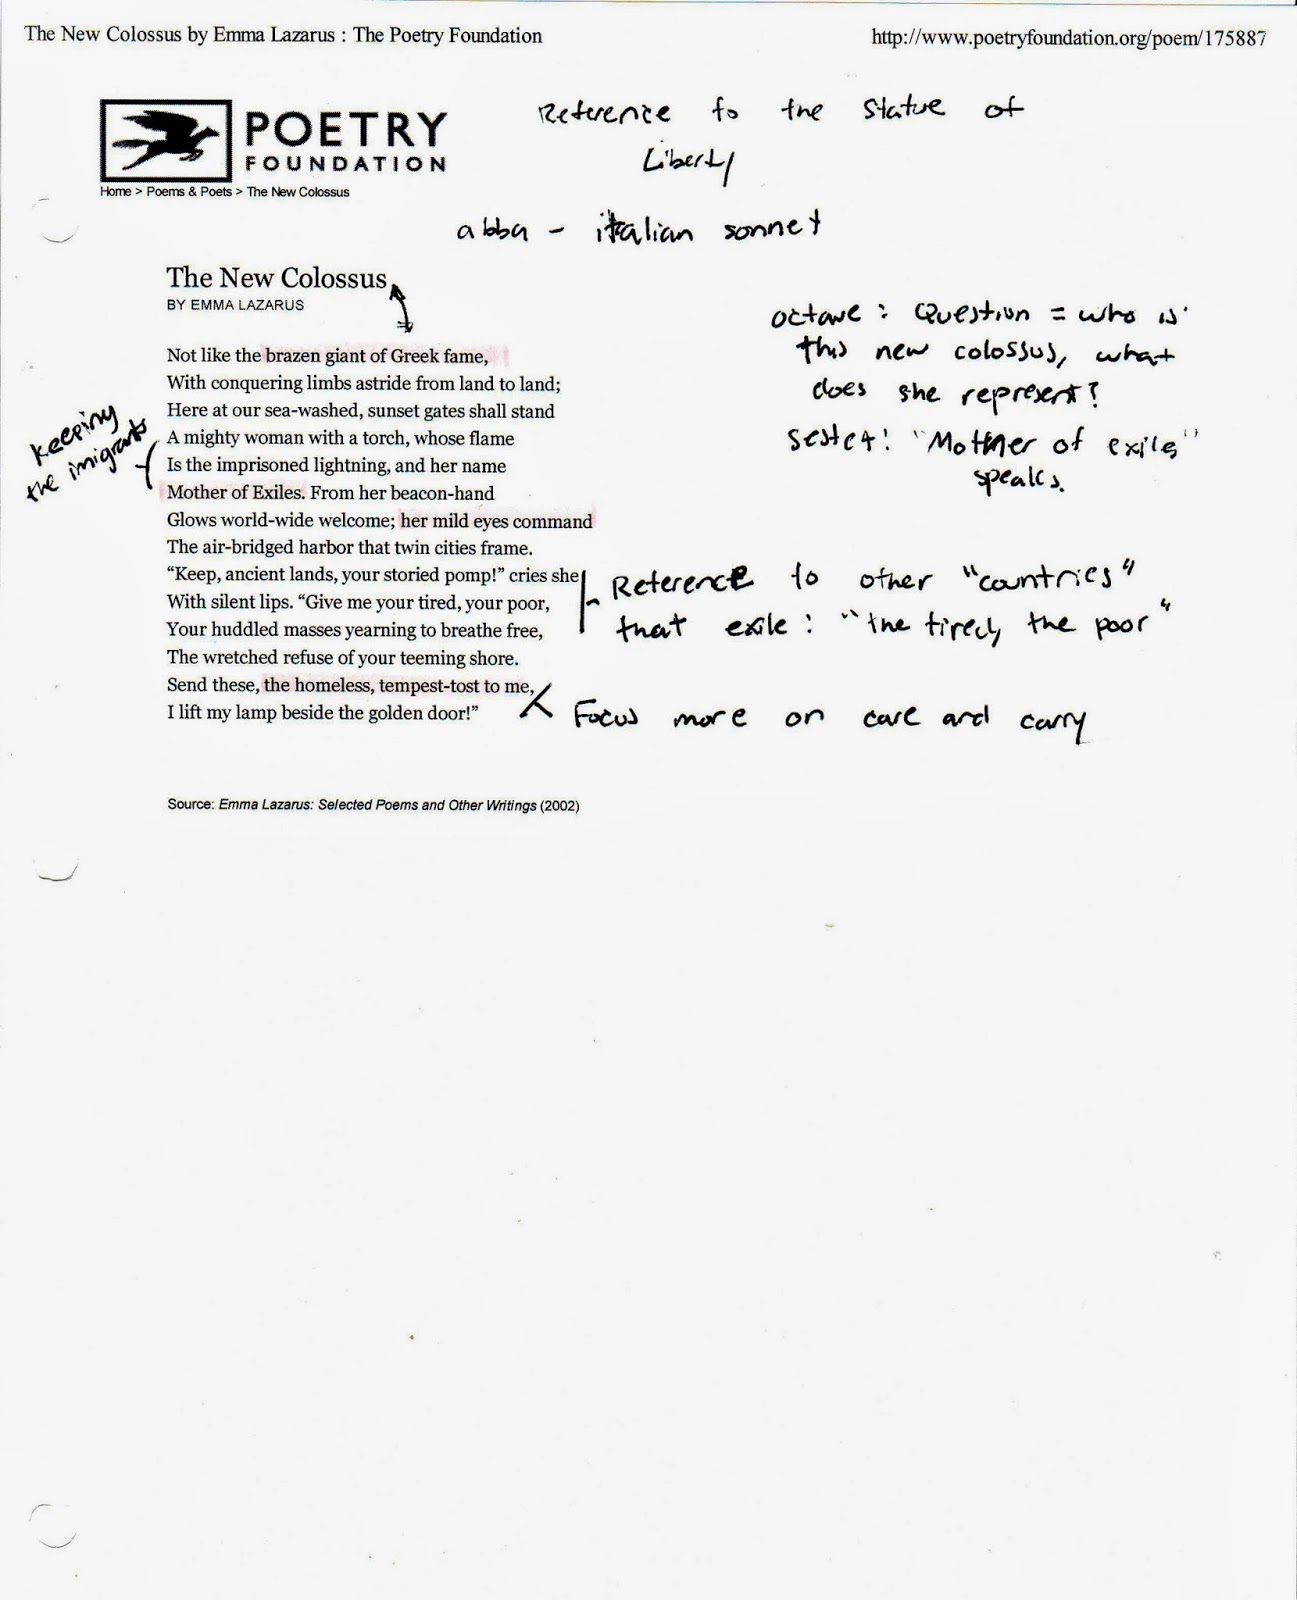 The New Colossus by Emma Lazarus : The Poetry Foundation
http://www.poetryfoundation.org/poem/175887
POETRY
FOUNDATION
Home > Poems & Poets > The New Colossus
Reference to the statue of
Liberty
abba - italian sonnet
The New Colossus
BY EMMA LAZARUS
octave : Question = who is
this new colossus, what
does she represent?
sestet: "Mother of exiles"
speaks.
Not like the brazen giant of Greek fame,
With conquering limbs astride from land to land;
Here at our sea-washed, sunset gates shall stand
A mighty woman with a torch, whose flame
Is the imprisoned lightning, and her name
Mother of Exiles. From her beacon-hand
Glows world-wide welcome; her mild eyes command
The air-bridged harbor that twin cities frame.
“Keep, ancient lands, your storied pomp!” cries she
With silent lips. “Give me your tired, your poor,
Your huddled masses yearning to breathe free,
The wretched refuse of your teeming shore.
Send these, the homeless, tempest-tost to me,
I lift my lamp beside the golden door!”
keeping
the imigrants
Reference to other "countries"
that exile : "the tired, the poor"
Focus more on care and carry
Source: Emma Lazarus: Selected Poems and Other Writings (2002)